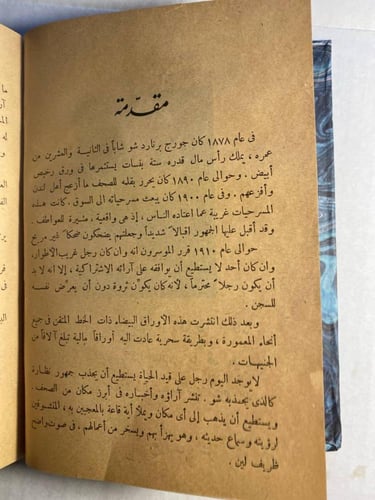 مقدّمة
في عام ١٨٧٨ كان جورج برنارد شو شاباً في الثانية والعشرين من
عمره ، يملك رأس مال قدره ستة بنسات يستثمرها في ورق رخيص
أبيض . وحوالى عام ١٨٩٠ كان يحرر بقلبه للصحف ما أزعج أهل لندن
وأفزعهم . وفى عام ١٩٠٠ كان يبعث مسرحياته الى السوق . كانت هذه
المسرحيات غريبة عما اعتاده الناس ، إذ هى واقعية ، مثيرة للعواطف .
وقد أقبل عليها الجمهور اقبالاً شديداً وجعلتهم يضحكون ضحكاً غير مريح
حوالى عام ١٩١٠ قرر الموسرون انه وان كان رجل غريب الأطوار،
وان كان أحد لا يستطيع أن يوافقه على آرائه الاشتراكية ، إلا انه لا بد
أن يكون رجلاً محترماً ، لأنه كان يكوّن ثروة دون أن يعرّض نفسه
للسجن .
وبعد ذلك انتشرت هذه الأوراق البيضاء ذات الخط المتقن في جميع
أنحاء المعمورة ، وبطريقة سحرية عادت اليه أوراقاً مالية تبلغ آلافاً من
الجنيهات .
لا يوجد اليوم رجل على قيد الحياة يستطيع أن يجذب جمهور نظارة
كالذى يجذبه شو . تنشر آراؤه وأخباره فى أبرز مكان من الصحف .
ويستطيع أن يذهب إلى أى مكان ويملأ أية قاعة بالمعجبين به ، المتشوفين
لرؤيته وسماع حديثه ، وهو يهزأ بهم ويسخر من أعمالهم ، فى صوت واضح
ظريف لين .